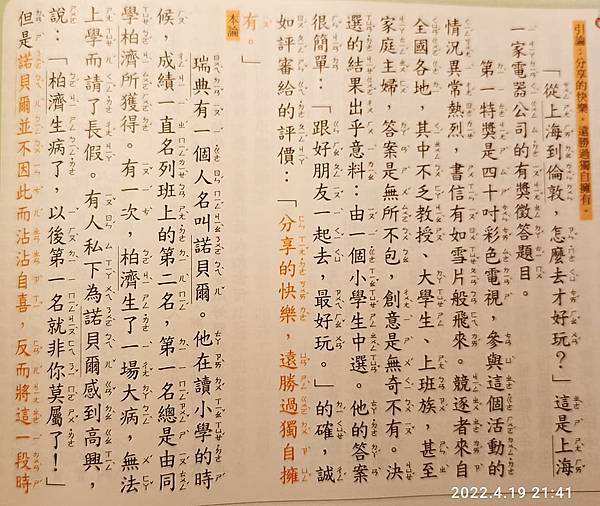 引論：分享的快樂，遠勝過獨自擁有。
「從上海到倫敦，怎麼去才好玩？」這是上海
一家電器公司的有獎徵答題目。
第一特獎是四十吋彩色電視，參與這個活動的
情況異常熱烈，書信有如雪片般飛來。競逐者來自
全國各地，其中不乏教授、大學生、上班族，甚至
家庭主婦，答案是無所不包，創意是無奇不有。決
選的結果出乎意料：由一個小學生中選。他的答案
很簡單：「跟好朋友一起去，最好玩。」的確，誠
如評審給的評價：「分享的快樂，遠勝過獨自擁
有。」
本論
瑞典有一個人名叫諾貝爾。他在讀小學的時
候，成績一直名列班上的第二名，第一名總是由同
學柏濟所獲得。有一次，柏濟生了一場大病，無法
上學而請了長假。有人私下為諾貝爾感到高興，
說：「柏濟生病了，以後第一名就非你莫屬了！」
但是諾貝爾並不因此而沾沾自喜，反而將這一段時
2022.4.19 21:41